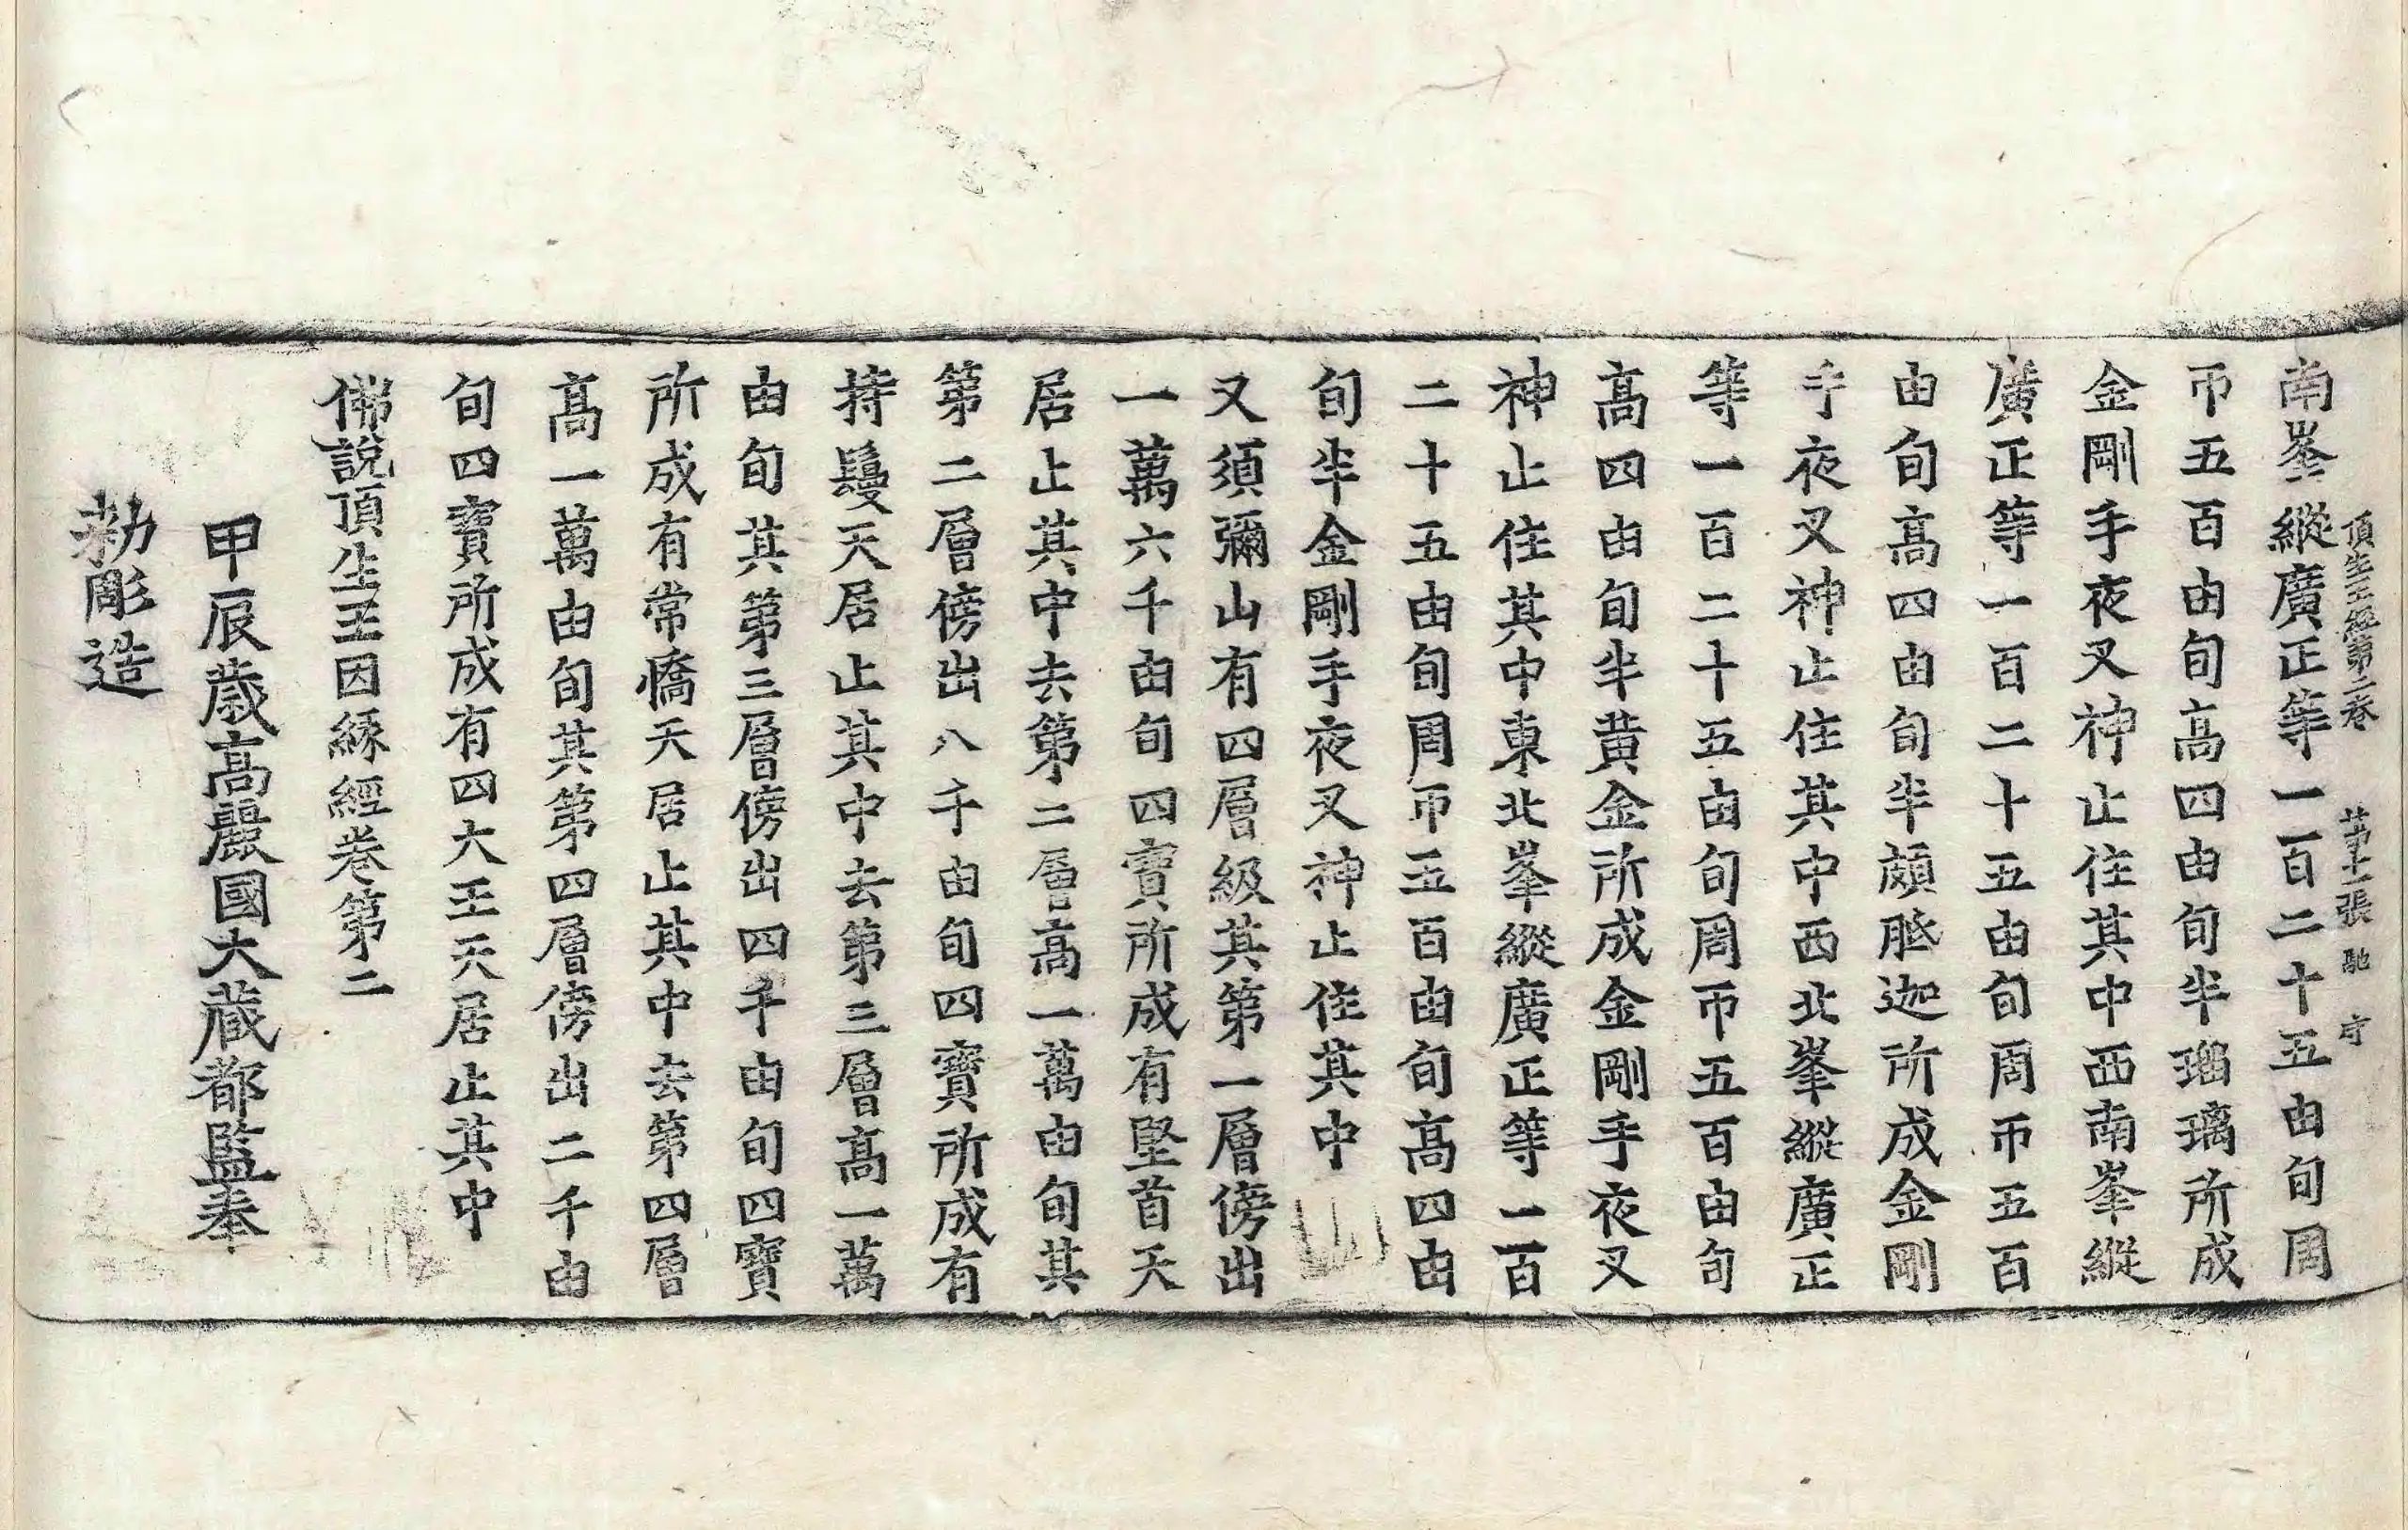 頂生王經第二卷 第十一張 馳 守
南峯縱廣正等一百二十五由旬周
帀五百由旬高四由旬半瑠璃所成
金剛手夜叉神止住其中西南峯縱
廣正等一百二十五由旬周帀五百
由旬高四由旬半頗胝迦所成金剛
手夜叉神止住其中西北峯縱廣正
等一百二十五由旬周帀五百由旬
高四由旬半黄金所成金剛手夜叉
神止住其中東北峯縱廣正等一百
二十五由旬周帀五百由旬高四由
旬半金剛手夜叉神止住其中
又須彌山有四層級其第一層傍出
一萬六千由旬四寶所成有堅首天
居止其中去第二層高一萬由旬其
第二層傍出八千由旬四寶所成有
持鬘天居止其中去第三層高一萬
由旬其第三層傍出四千由旬四寶
所成有常憍天居止其中去第四層
高一萬由旬其第四層傍出二千由
旬四寶所成有四大王天居止其中
佛說頂生王因緣經卷第二
甲辰歲高麗國大藏都監奉
勅彫造